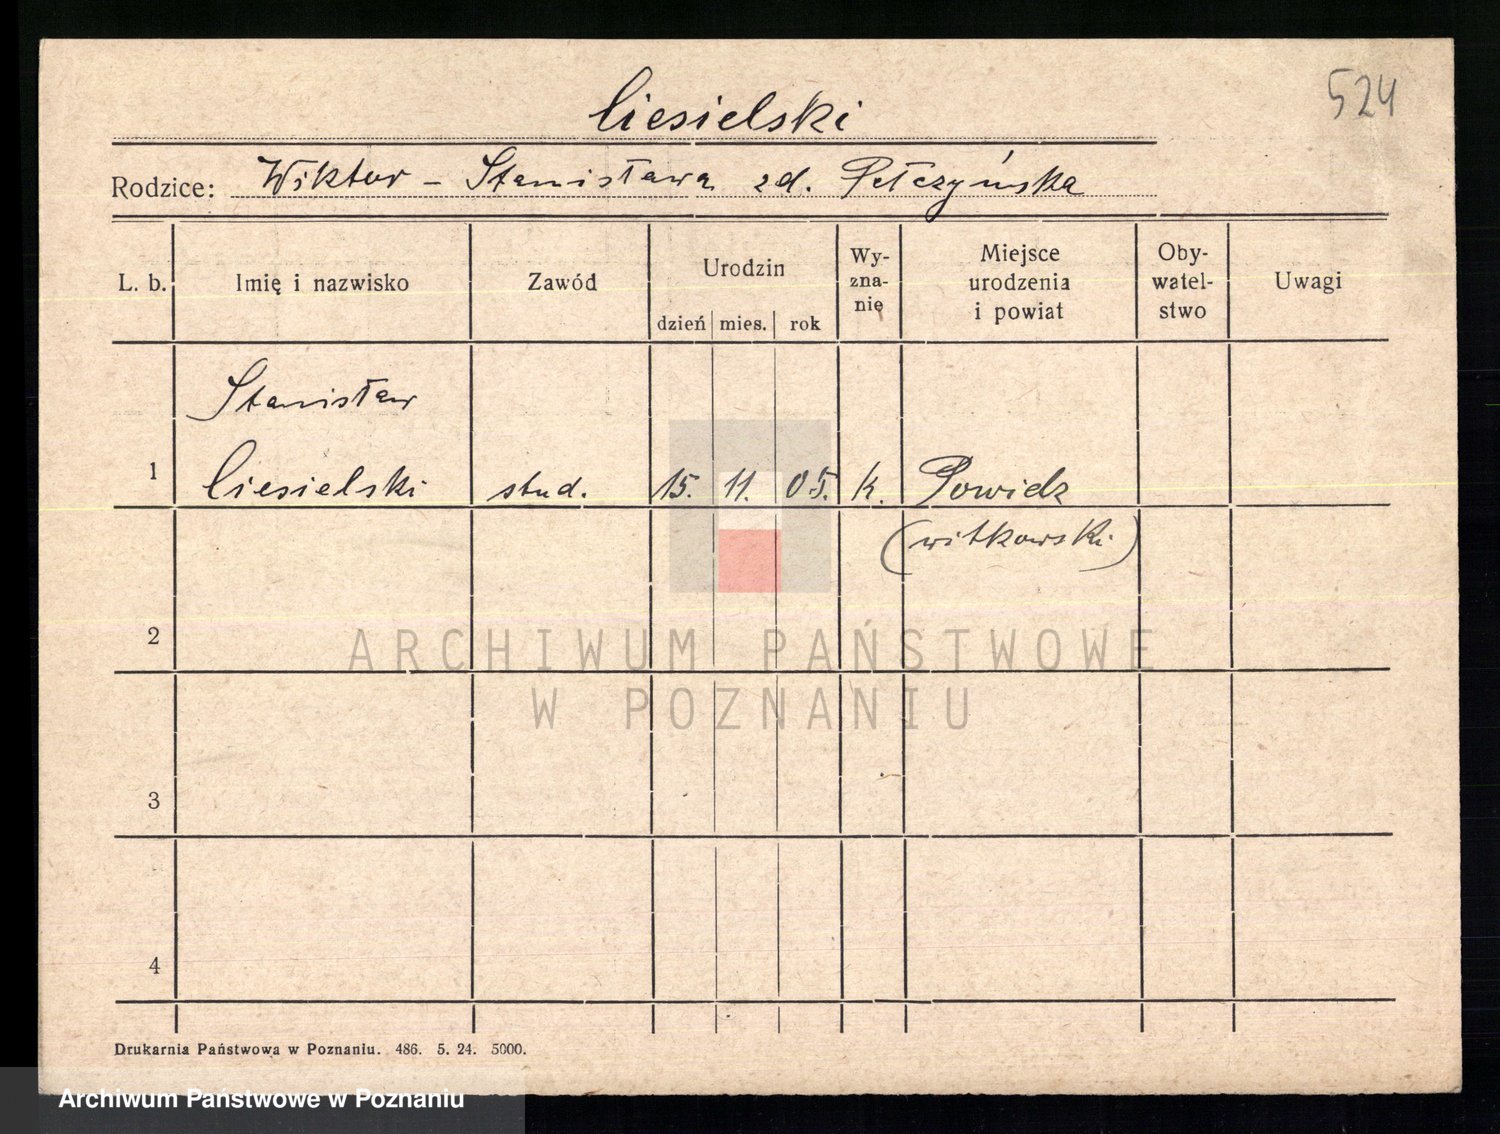 524
Ciesielski
Rodzice: Wiktor – Stanisława zd. Pełczyńska
L. b. Imię i nazwisko Zawód Urodzin dzień mies. rok Wy-zna-nię Miejsce urodzenia i powiat Oby-watel-stwo Uwagi
Stanisław
1 Ciesielski stud. 15. 11. 05. k. Powidz
(witkowski)
2
ARCHIWUM PAŃSTWOWE
W POZNANIU
3
4
Drukarnia Państwowa w Poznaniu. 486. 5. 24. 5000.
Archiwum Państwowe w Poznaniu